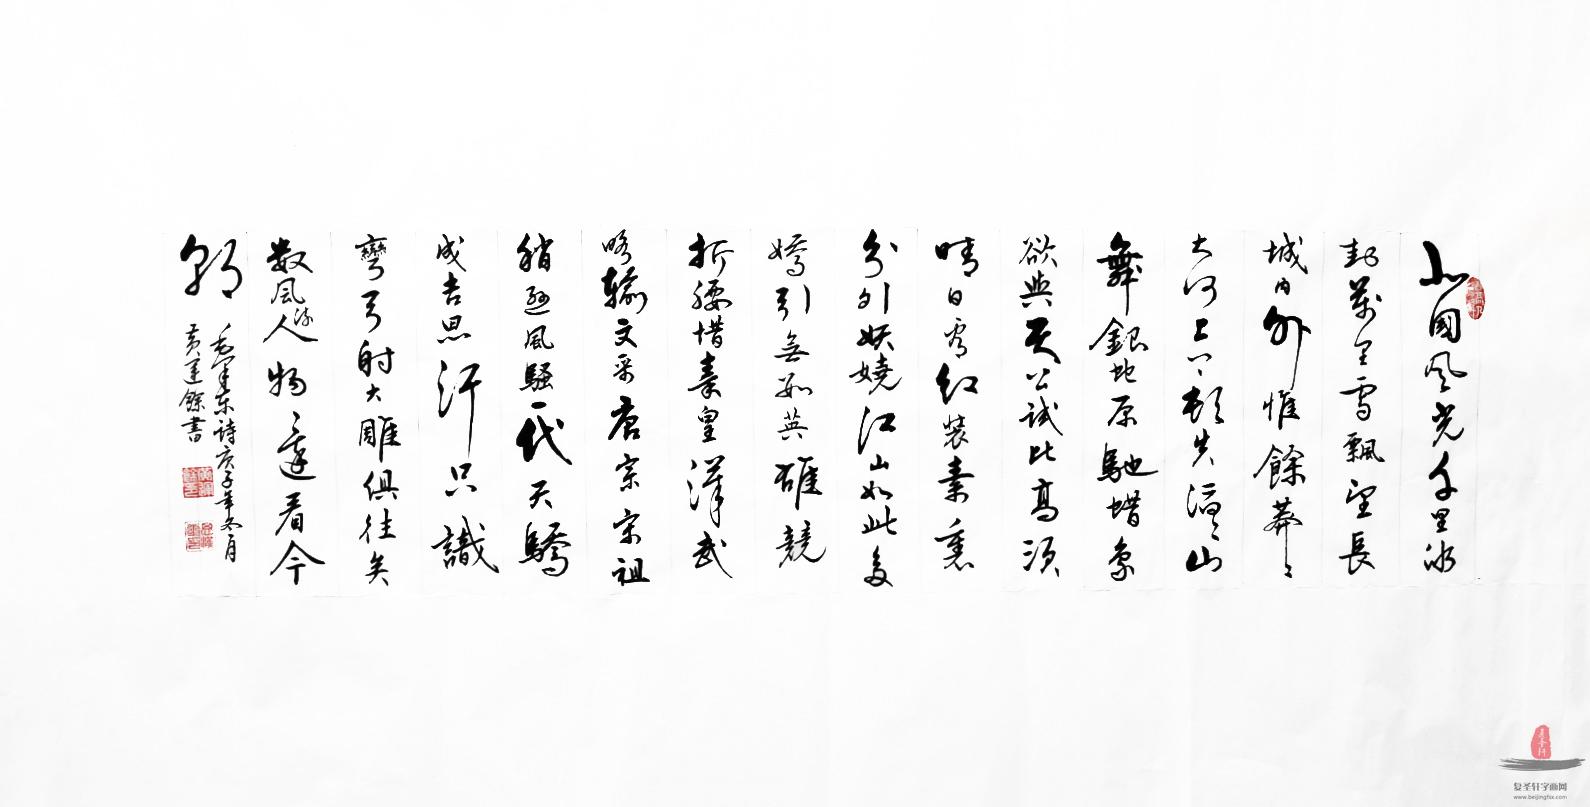 北國风光千里冰
封萬里雪飄望長
城内外惟餘莽々
大河上下頓失滔々山
舞銀蛇原馳蜡象
欲與天公試比高須
晴日看红装素裹
分外妖嬈江山如此多
嬌引無数英雄競
折腰惜秦皇漢武
略输文采唐宗宋祖
稍逊風騷一代天驕
成吉思汗只識
彎弓射大雕俱往矣
数風流人物還看今
朝
毛泽东詩庚子年冬月
黄餘書
复圣轩字画网
www.beijingfsx.com